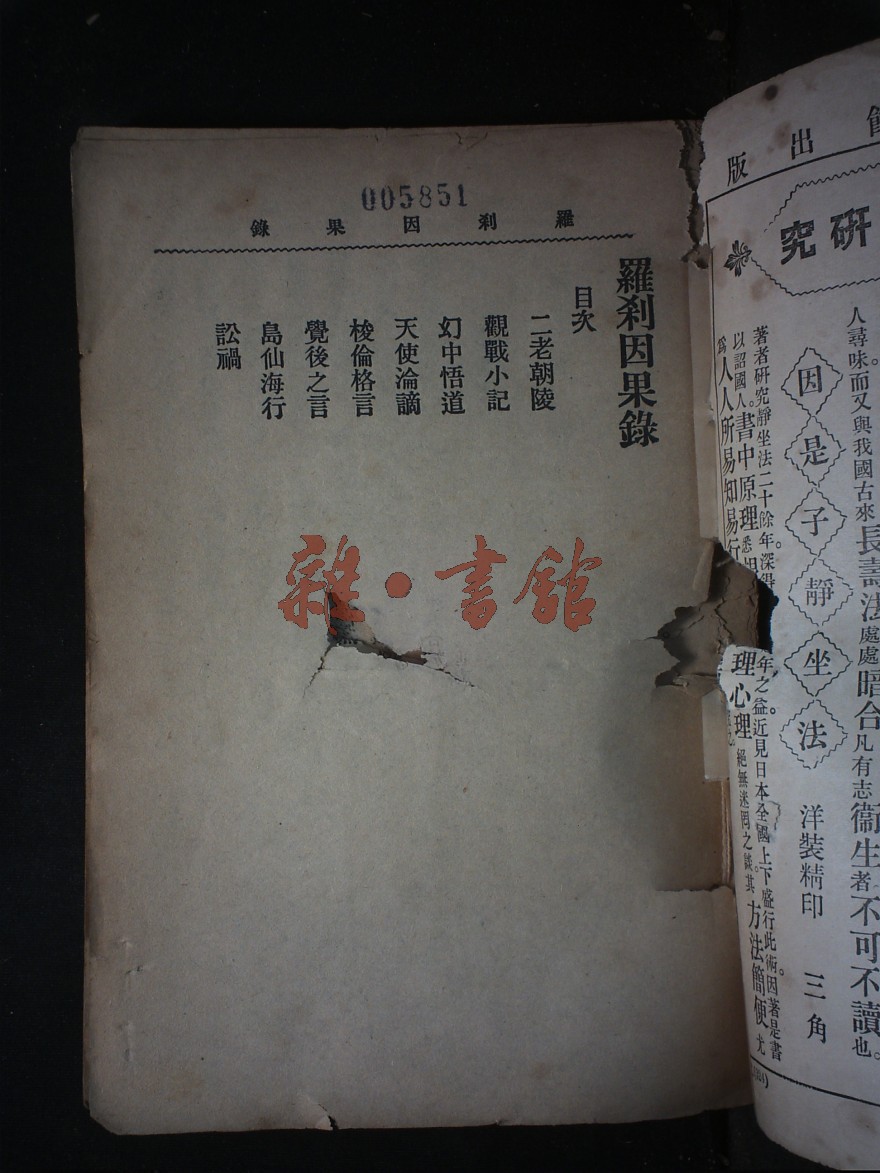 005851
羅刹因果錄
羅刹因果錄
目次
二老朝陵
觀戰小記
幻中悟道
天使淪謫
梭倫格言
覺後之言
島仙海行
訟禍
雜·書館
出版
研究
人尋味。而又與我國古來長壽法處處暗合凡有志衞生者不可不讀也。
因是子靜坐法
洋裝精印 三角
著者研究靜坐法二十餘年深得
年之益近見日本全國上下盛行此術。因著是書
以詔國人。書中原理悉
理心理絕無迷罔之談。其方法簡便尤
爲人人所易知易行